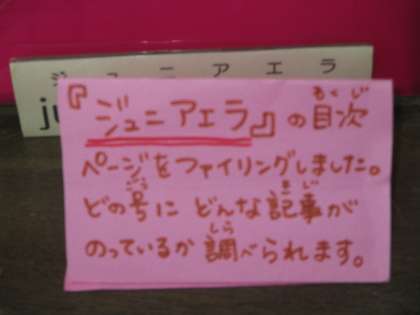 ジュニアエラ
ju
『ジュニアエラ』の目次
もくじ
ページをファイリングしました。
ごう
きじ
どの号にどんな記事が
しら
のっているか調べられます。